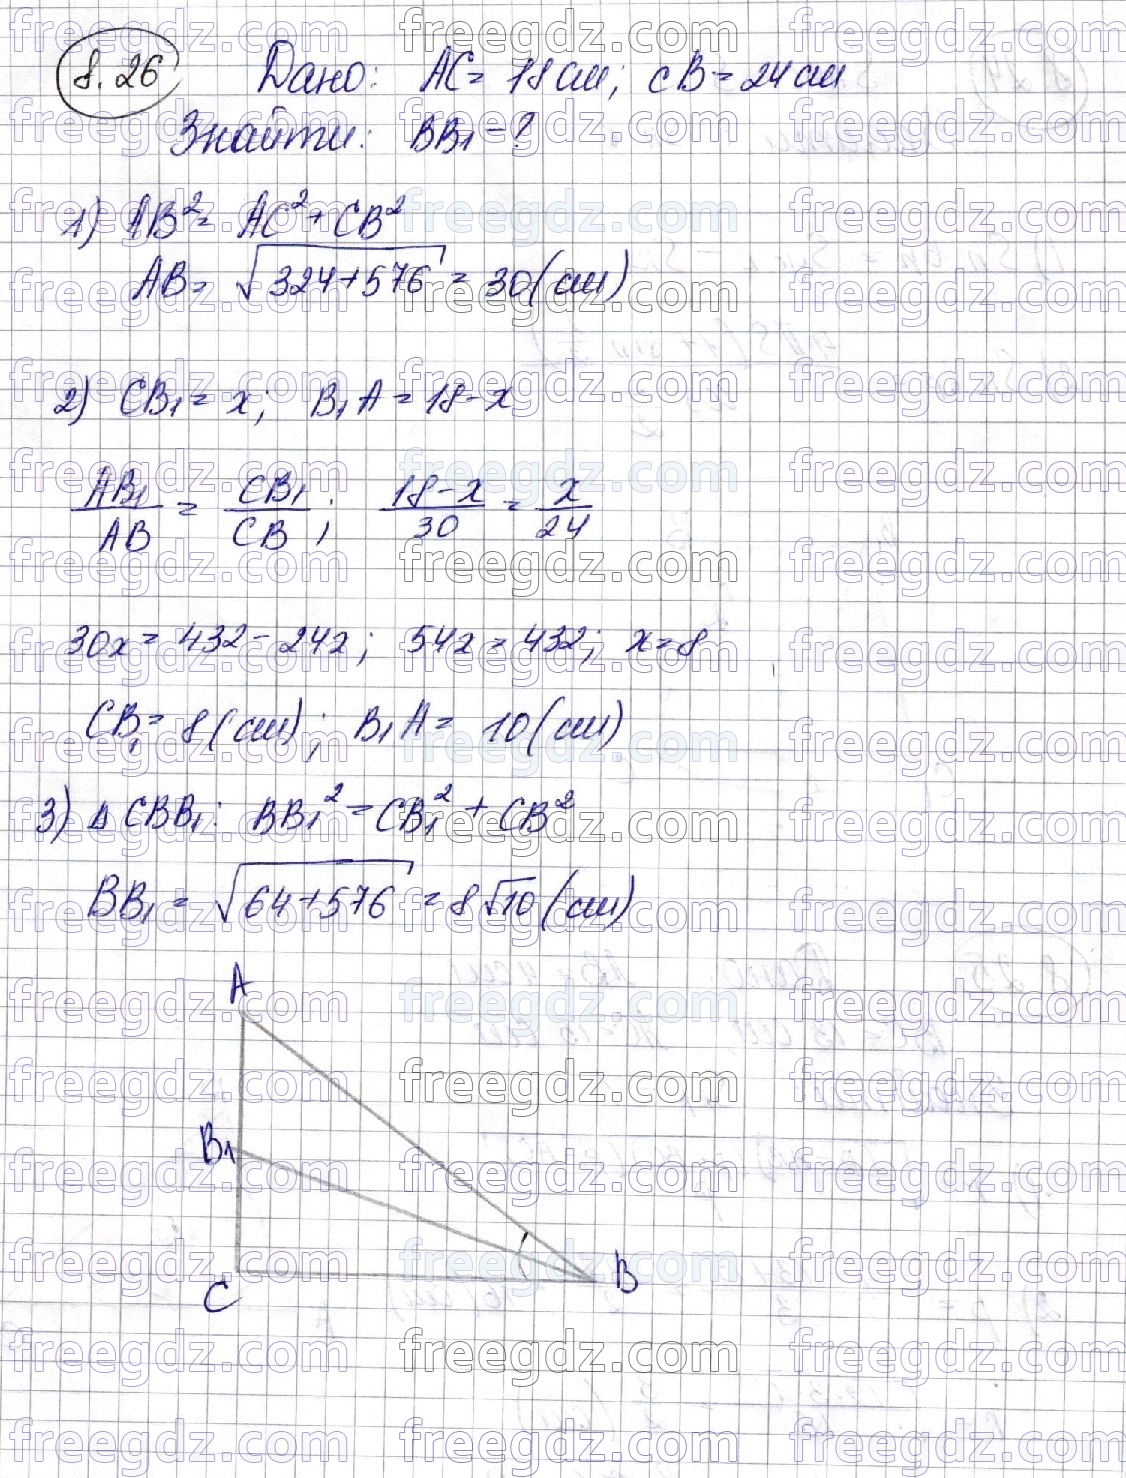 8.26
Дано: AC = 18 см; CB = 24 см
Знайти: BB₁ - ?
1) AB² = AC² + CB²
AB = √(324+576) = 30 (см)
2) CB₁ = x; B₁A = 18 - x
AB₁/AB = CB₁/CB; (18-x)/30 = x/24
30x = 432 - 24x; 54x = 432; x = 8
CB₁ = 8 (см); B₁A = 10 (см)
3) Δ CBB₁: BB₁² = CB₁² + CB²
BB₁ = √(64+576) = 8√10 (см)
A
B₁
C
B
freegdz.com